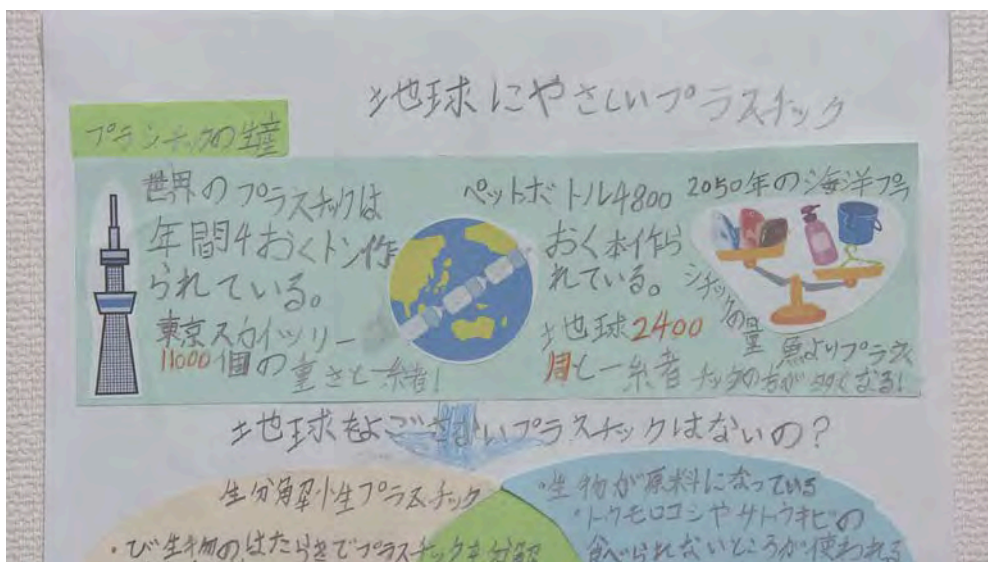 地球にやさしいプラスチック
プラスチックの生産
世界のプラスチックは
年間4おくトン作
られている。
東京スカイツリー
11000個の重さと一緒!
ペットボトル4800
おく本作ら
れている。
地球2400
周と一緒
2050年の海洋プラ
スチックの量
魚よりプラス
チックの方が多くなる!
地球をよごさないプラスチックはないの?
生分解性プラスチック
・び生物のはたらきでプラスチックを分解
・生物が原料になっている
・トウモロコシやサトウキビの
食べられないところが使われる